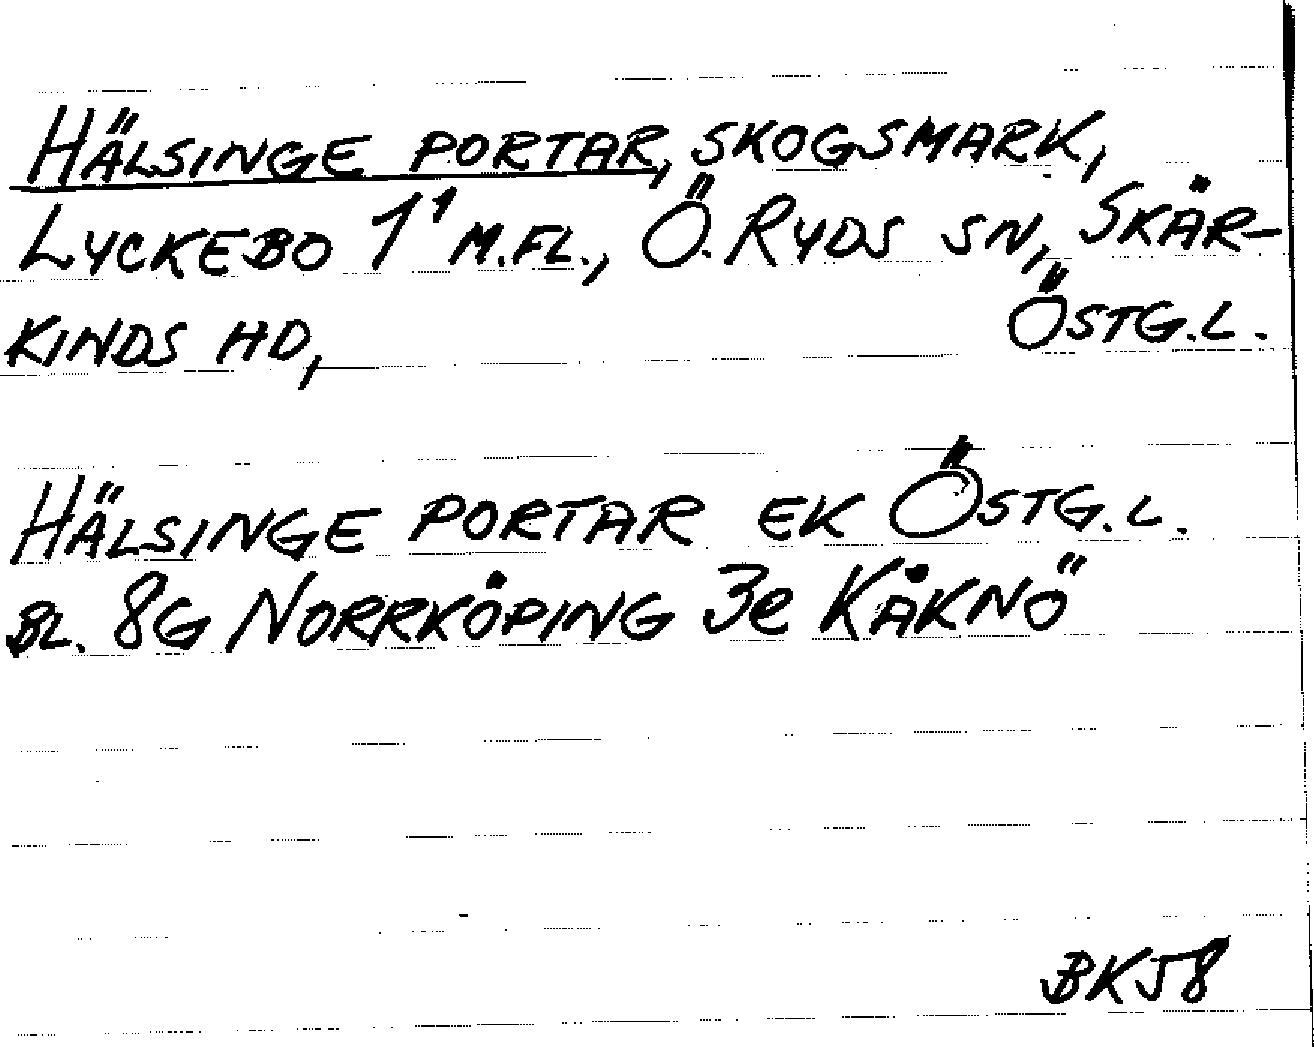 HÄLSINGE PORTAR, SKOGSMARK,
LYCKEBO 1¹ M.FL., Ö. RYDS SN, SKÄR-
KINDS HD, ÖSTG.L.
HÄLSINGE PORTAR EK ÖSTG.L.
BL. 8G NORRKÖPING 3e KÅKNÖ
BK58